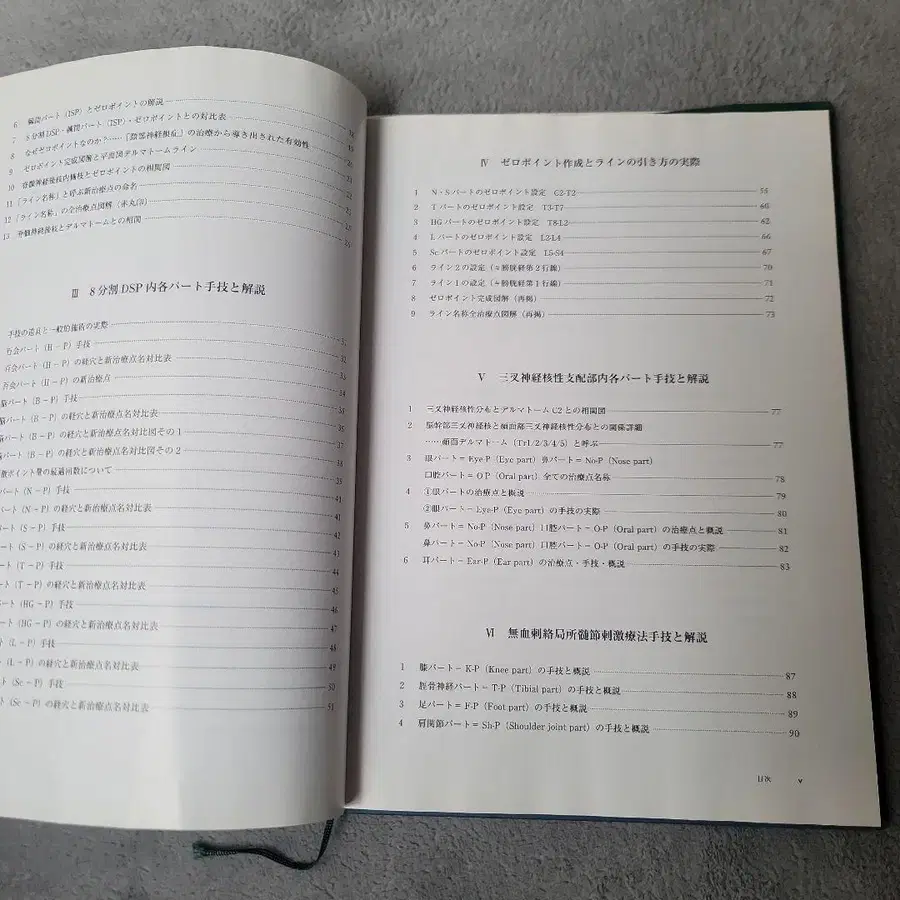 6 椎間パート(ISP)とゼロポイントの解説
7 8分割DSP・椎間パート(ISP)・ゼロポイントとの対比表
8 なぜゼロポイントなのか?……『頚部神経根症』の治療から導き出された有効性
9 ゼロポイント完成図解と平面図デルマトームライン
10 脊髄神経後枝内側枝とゼロポイントの相関図
11 「ライン名称」と呼ぶ新治療点の命名
12 「ライン名称」の全治療点図解(赤丸印)
13 脊髄神経後枝とデルマトームとの相関
Ⅲ 8分割DSP内各パート手技と解説
手技の道具と一般的施術の実際
百会パート(H-P)手技 32
百会パート(H-P)の経穴と新治療点名対比表 33
百会パート(H-P)の新治療点 34
脳パート(B-P)手技 35
脳パート(B-P)の経穴と新治療点名対比表 36
脳パート(B-P)の経穴と新治療点名対比図その1
脳パート(B-P)の経穴と新治療点名対比図その2 38
激ポイント量の最適回数について
パート(N-P)手技 41
パート(N-P)の経穴と新治療点名対比表 41
パート(S-P)手技 42
パート(S-P)の経穴と新治療点名対比表 43
パート(T-P)手技 44
パート(T-P)の経穴と新治療点名対比表 45
パート(HG-P)手技 46
パート(HG-P)の経穴と新治療点名対比表 47
ト(L-P)手技 48
ト(L-P)の経穴と新治療点名対比表 49
ト(Sc-P)手技 50
ト(Sc-P)の経穴と新治療点名対比表 51
Ⅳ ゼロポイント作成とラインの引き方の実際
1 N・Sパートのゼロポイント設定 C2-T2 55
2 Tパートのゼロポイント設定 T3-T7 60
3 HGパートのゼロポイント設定 T8-L2 62
4 Lパートのゼロポイント設定 L2-L4 66
5 Scパートのゼロポイント設定 L5-S4 67
6 ライン2の設定(≒膀胱経第2行線) 70
7 ライン1の設定(≒膀胱経第1行線) 71
8 ゼロポイント完成図解(再掲) 72
9 ライン名称全治療点図解(再掲) 73
Ⅴ 三叉神経核性支配部内各パート手技と解説
1 三叉神経核性分布とデルマトームC2との相関図 77
2 脳幹部三叉神経核と顔面部三叉神経核性分布との関係詳細
……顔面デルマトーム(Tr1/2/3/4/5)と呼ぶ 77
3 眼パート=Eye-P(Eye part)鼻パート=No-P(Nose part)
口腔パート=O-P(Oral part)全ての治療点名称 78
4 ①眼パートの治療点と概説 79
②眼パート=Eye-P(Eye part)の手技の実際 80
5 鼻パート=No-P(Nose part)口腔パート=O-P(Oral part)の治療点と概説 81
鼻パート=No-P(Nose part)口腔パート=O-P(Oral part)の手技の実際 82
6 耳パート=Ear-P(Ear part)の治療点・手技・概説 83
Ⅵ 無血刺絡局所髄節刺激療法手技と解説
1 膝パート=K-P(Knee part)の手技と概説 87
2 脛骨神経パート=T-P(Tibial part)の手技と概説 88
3 足パート=F-P(Foot part)の手技と概説 89
4 肩関節パート=Sh-P(Shoulder joint part)の手技と概説 90
目次 v